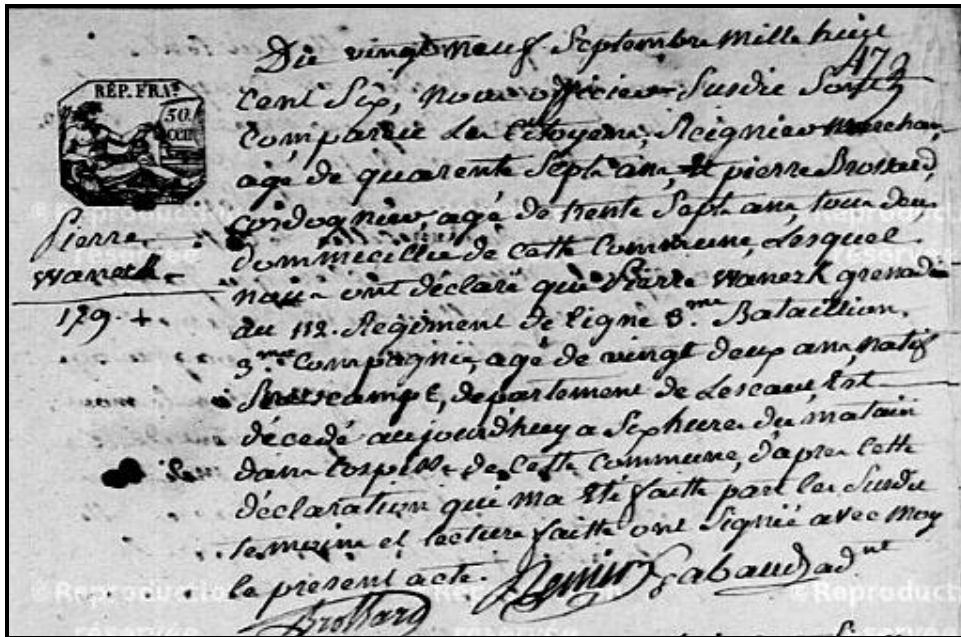 Du vingt neuf Septembre mille huit
479
cent Six, nous officier Susdit Sont
RÉP. FRA.
50.
CEN.
comparue Les Citoyens, Reignier marchan,
agé de quarente Sept ans, Et pierre Brossard,
cordognier, agé de trente Sept ans, tous deux
Pierre
dommecillié de cette Commune, Lesquel
Wanerk
nous ont déclaré que Pierre Wanerk grenadié
179 +
au 112. Regiment de ligne 3.me Bataillion,
3.me Compagnie, agé de vingt deux ans, natif
département de Lescaut, Est
décedé aujourd'huy a Six heure du matain
dans Lospisse de Cette Commune, dapres cette
déclaration qui ma Eté faitte par les Susdit
temoins et lecture faitte ont Signié avec moy
le présent acte.
Reignier Gabaud adnt
Brossard
© Reproduction
réservée
© Reproduction
réservée
© Reproduction
réservée